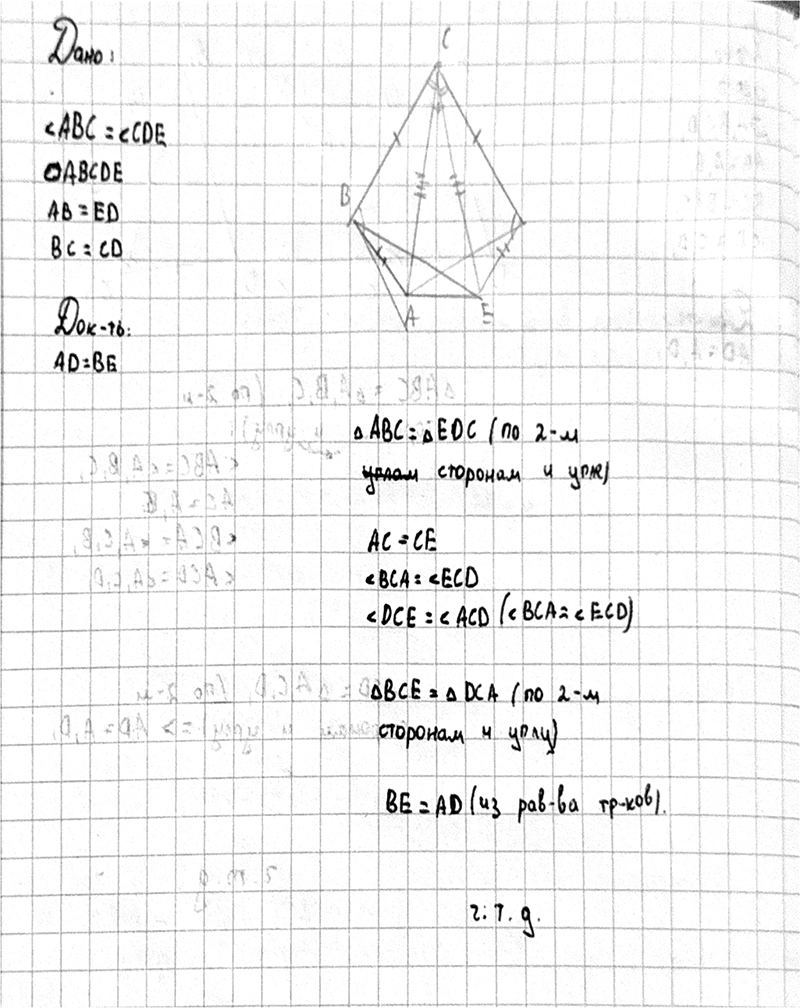 Дано:
∢ABC = ∢CDE
ABCDE
AB = ED
BC = CD
Док-ть:
AD = BE
C
B
A
E
△ABC = △EDC (по 2-м
углам сторонам и углу)
AC = CE
∢BCA = ∢ECD
∢DCE = ∢ACD (∢BCA = ∢ECD)
△BCE = △DCA (по 2-м
сторонам и углу)
BE = AD (из рав-ва тр-ков).
ч.т.д.